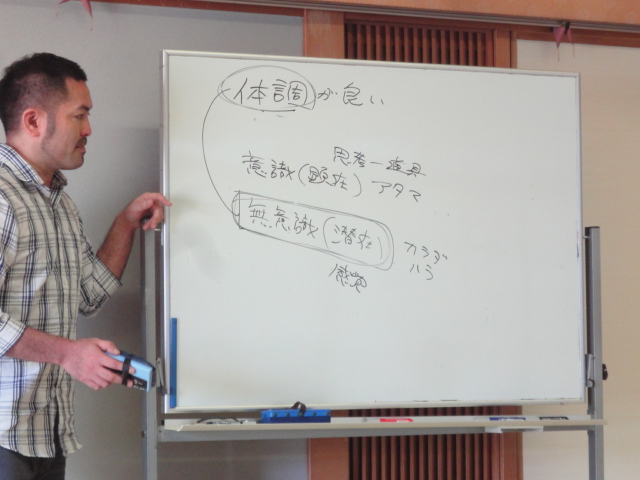 体調が良い
思考ー道具
意識(顕在) アタマ
無意識(潜在) カラダ
ハラ
感覚